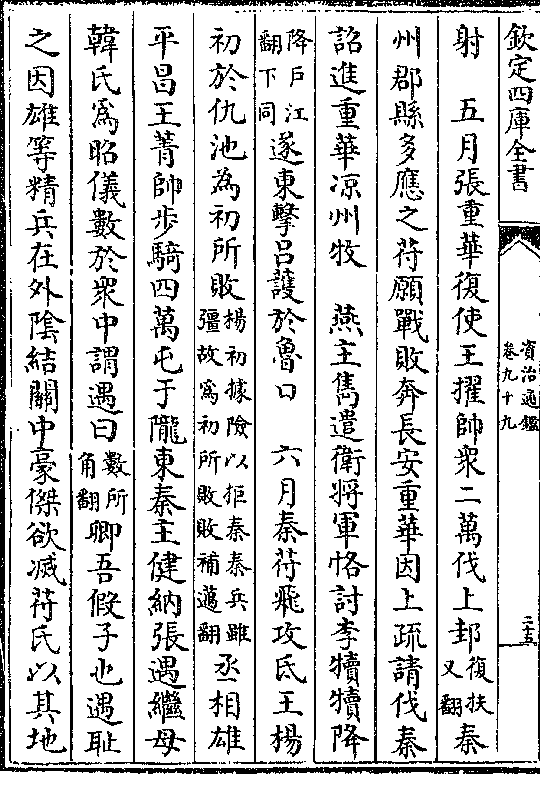 欽定四庫全書
資治通鑑
卷九十九
二十五
射　五月張重華復使王擢帥衆二萬伐上邽復扶又翻秦
州郡縣多應之苻願戰敗奔長安重華因上疏請伐秦
詔進重華涼州牧　燕主雋遣衛將軍恪討李犢犢降
降戶江翻下同遂東擊呂䕶於魯口　六月秦苻飛攻氐王楊
初於仇池為初所敗楊初據險以拒秦秦兵雖彊故為初所敗敗補邁翻丞相雄
平昌王菁帥步騎四萬屯于隴東秦主健納張遇繼母
韓氏爲昭儀數於衆中謂遇曰數所角翻卿吾假子也遇恥
之因雄等精兵在外陰結關中豪傑欲滅苻氏以其地